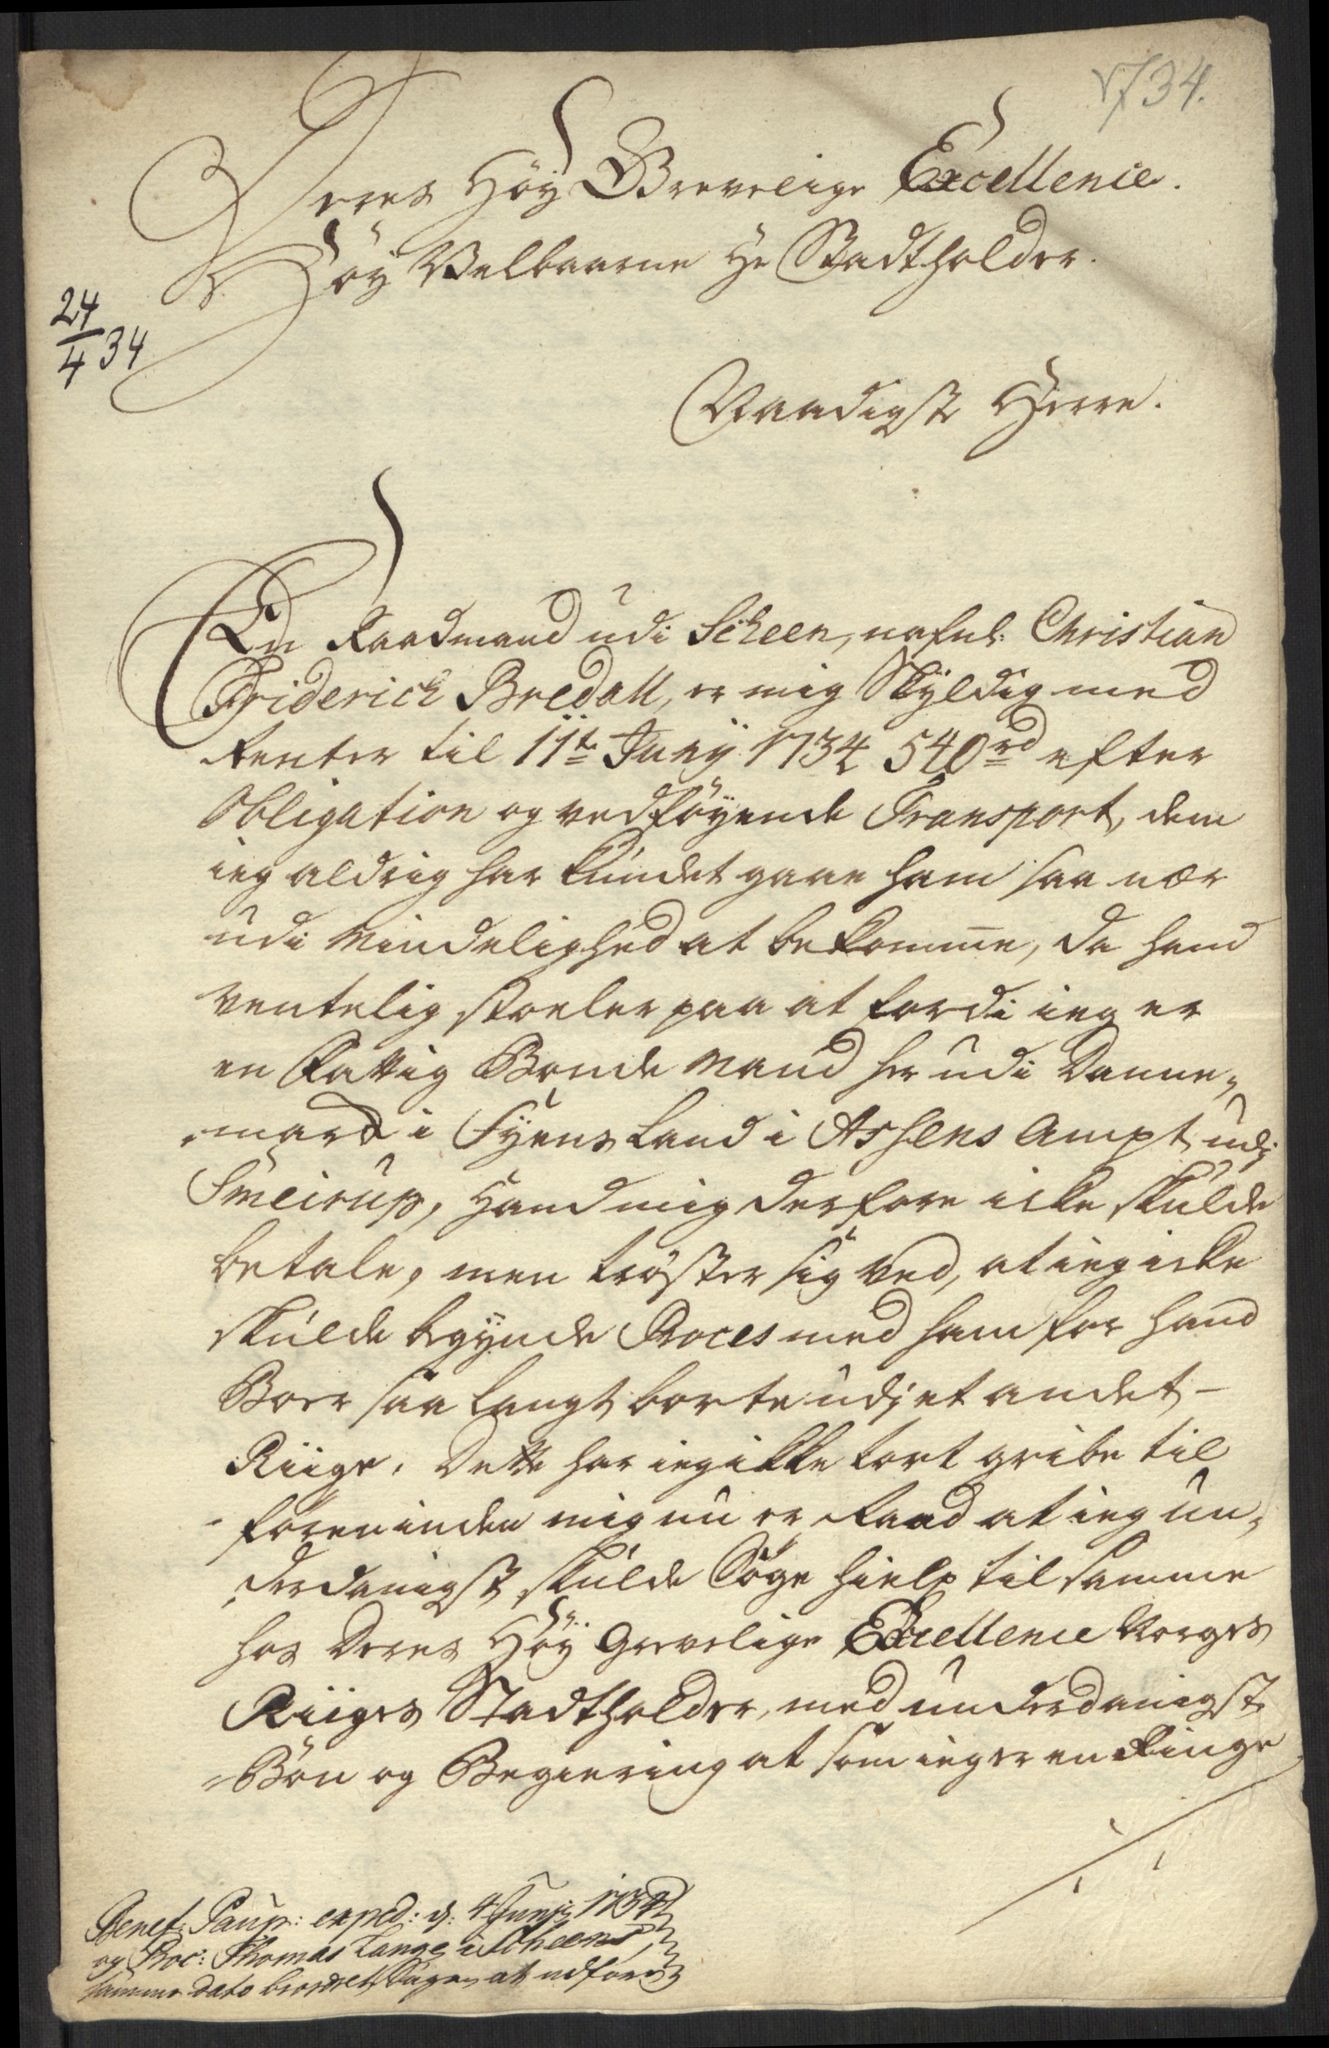 1734.
Deres Höy Grevelige Excellence.
Höy Velbaarne Hr Stadtholder.
24/4 34
Naadigste Herre.
En Raadmand udi Scheen, nafnl: Christian
Friderich Bredall, er mig Skyldig med
Renter til 11te Juny 1734 540rd efter
Obligation og vedföyende Transport, dem
ieg aldrig har kundet gaae ham saa nær
udi Mindelighed at bekomme, da hand
ventelig stoeler paa at fordi ieg er
en Fattig Bonde Mand her udi Danne,,
,,mark i Fyens Land i Assens Ampt udj
Smeirup, Hand mig derfore icke skulde
betale, men tröster sig ved, at ieg icke
skulde begynde Proces med ham for hand
Boer saa langt borte udj et andet
Riige. Dette har ieg ikke tort gribe til
förend inden mig nu er Raad at ieg un,,
,,derdanigst skulde Söge hielp til samme
hos Deres Höy Grevelige Excellence Norges
Riiges Stadtholder, med underdanigst
Bön og Begiering at som ieg er en Ringe
Benef: Paup: exped: d: 4 Junj 1734
og Proc: Thomas Lange i Scheen
samme dato beordret Sagen at udföre